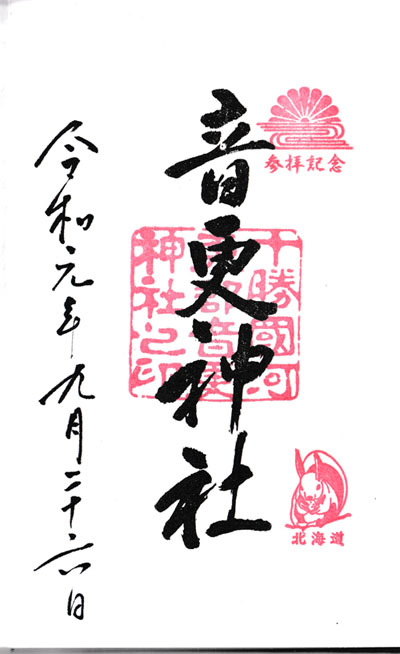 参拝記念
音更神社
十勝國河
東郡音更
神社之印
北海道
令和元年九月二十六日